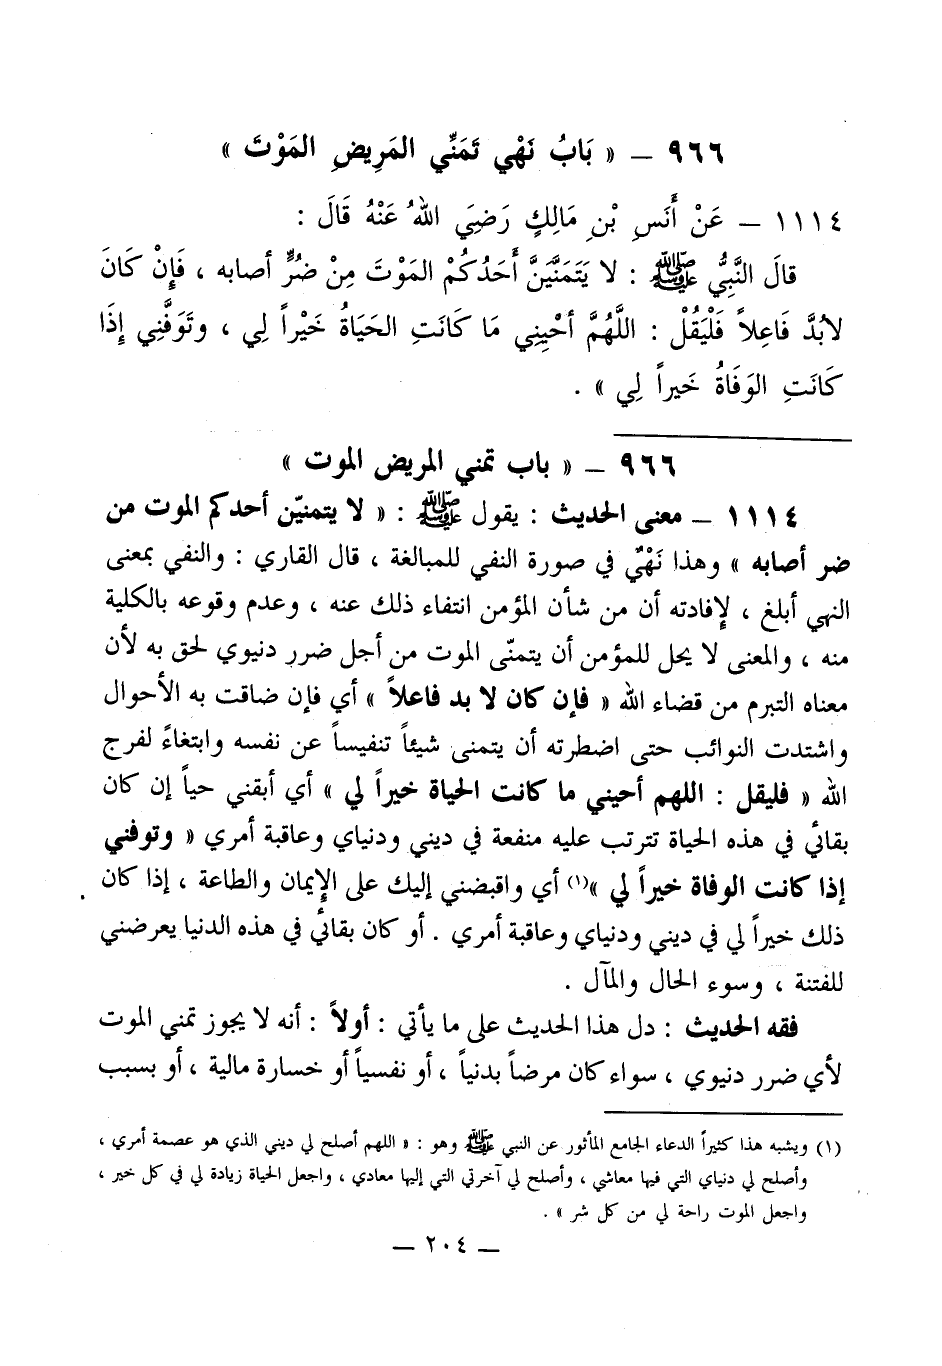 ٩٦٦ – « بَابُ نَهْي تَمَنِّي المَرِيضِ المَوْتَ »
١١١٤ – عَنْ أَنَسِ بْنِ مَالِكٍ رَضِيَ اللهُ عَنْهُ قَالَ :
قالَ النَّبِيُّ ﷺ : لا يَتَمَنَّيَنَّ أَحَدُكُمْ المَوْتَ مِنْ ضُرٍّ أصابه ، فَإِنْ كَانَ
لابُدَّ فَاعِلاً فَلْيَقُلْ : اللَّهُمَّ أحْيِنِي مَا كَانَتِ الحَيَاةُ خَيْراً لِي ، وتَوَفَّنِي إِذَا
كَانَتِ الوَفَاةُ خَيراً لِي » .
٩٦٦ – « باب تمني المريض الموت »
١١١٤ – معنى الحديث : يقول ﷺ : « لا يتمنيّن أحدكم الموت من
ضر أصابه » وهذا نَهْيٌ في صورة النفي للمبالغة ، قال القاري : والنفي بمعنى
النهي أبلغ ، لإِفادته أن من شأن المؤمن انتفاء ذلك عنه ، وعدم وقوعه بالكلية
منه ، والمعنى لا يحل للمؤمن أن يتمنّى الموت من أجل ضرر دنيوي لحق به لأن
معناه التبرم من قضاء الله « فإن كان لا بد فاعلاً » أي فإن ضاقت به الأحوال
واشتدت النوائب حتى اضطرته أن يتمنى شيئاً تنفيساً عن نفسه وابتغاءً لفرج
الله « فليقل : اللهم أحيني ما كانت الحياة خيراً لي » أي أبقني حياً إن كان
بقائي في هذه الحياة تترتب عليه منفعة في ديني ودنياي وعاقبة أمري « وتوفني
إذا كانت الوفاة خيراً لي »(١) أي واقبضني إليك على الإِيمان والطاعة ، إذا كان
ذلك خيراً لي في ديني ودنياي وعاقبة أمري . أو كان بقائي في هذه الدنيا يعرضني
للفتنة ، وسوء الحال والمآل .
فقه الحديث : دل هذا الحديث على ما يأتي : أولاً : أنه لا يجوز تمني الموت
لأي ضرر دنيوي ، سواء كان مرضاً بدنياً ، أو نفسياً أو خسارة مالية ، أو بسبب
(١) ويشبه هذا كثيراً الدعاء الجامع المأثور عن النبي ﷺ وهو : « اللهم أصلح لي ديني الذي هو عصمة أمري ،
وأصلح لي دنياي التي فيها معاشي ، وأصلح لي آخرتي التي إليها معادي ، واجعل الحياة زيادة لي في كل خير ،
واجعل الموت راحة لي من كل شر » .
– ٢٠٤ –